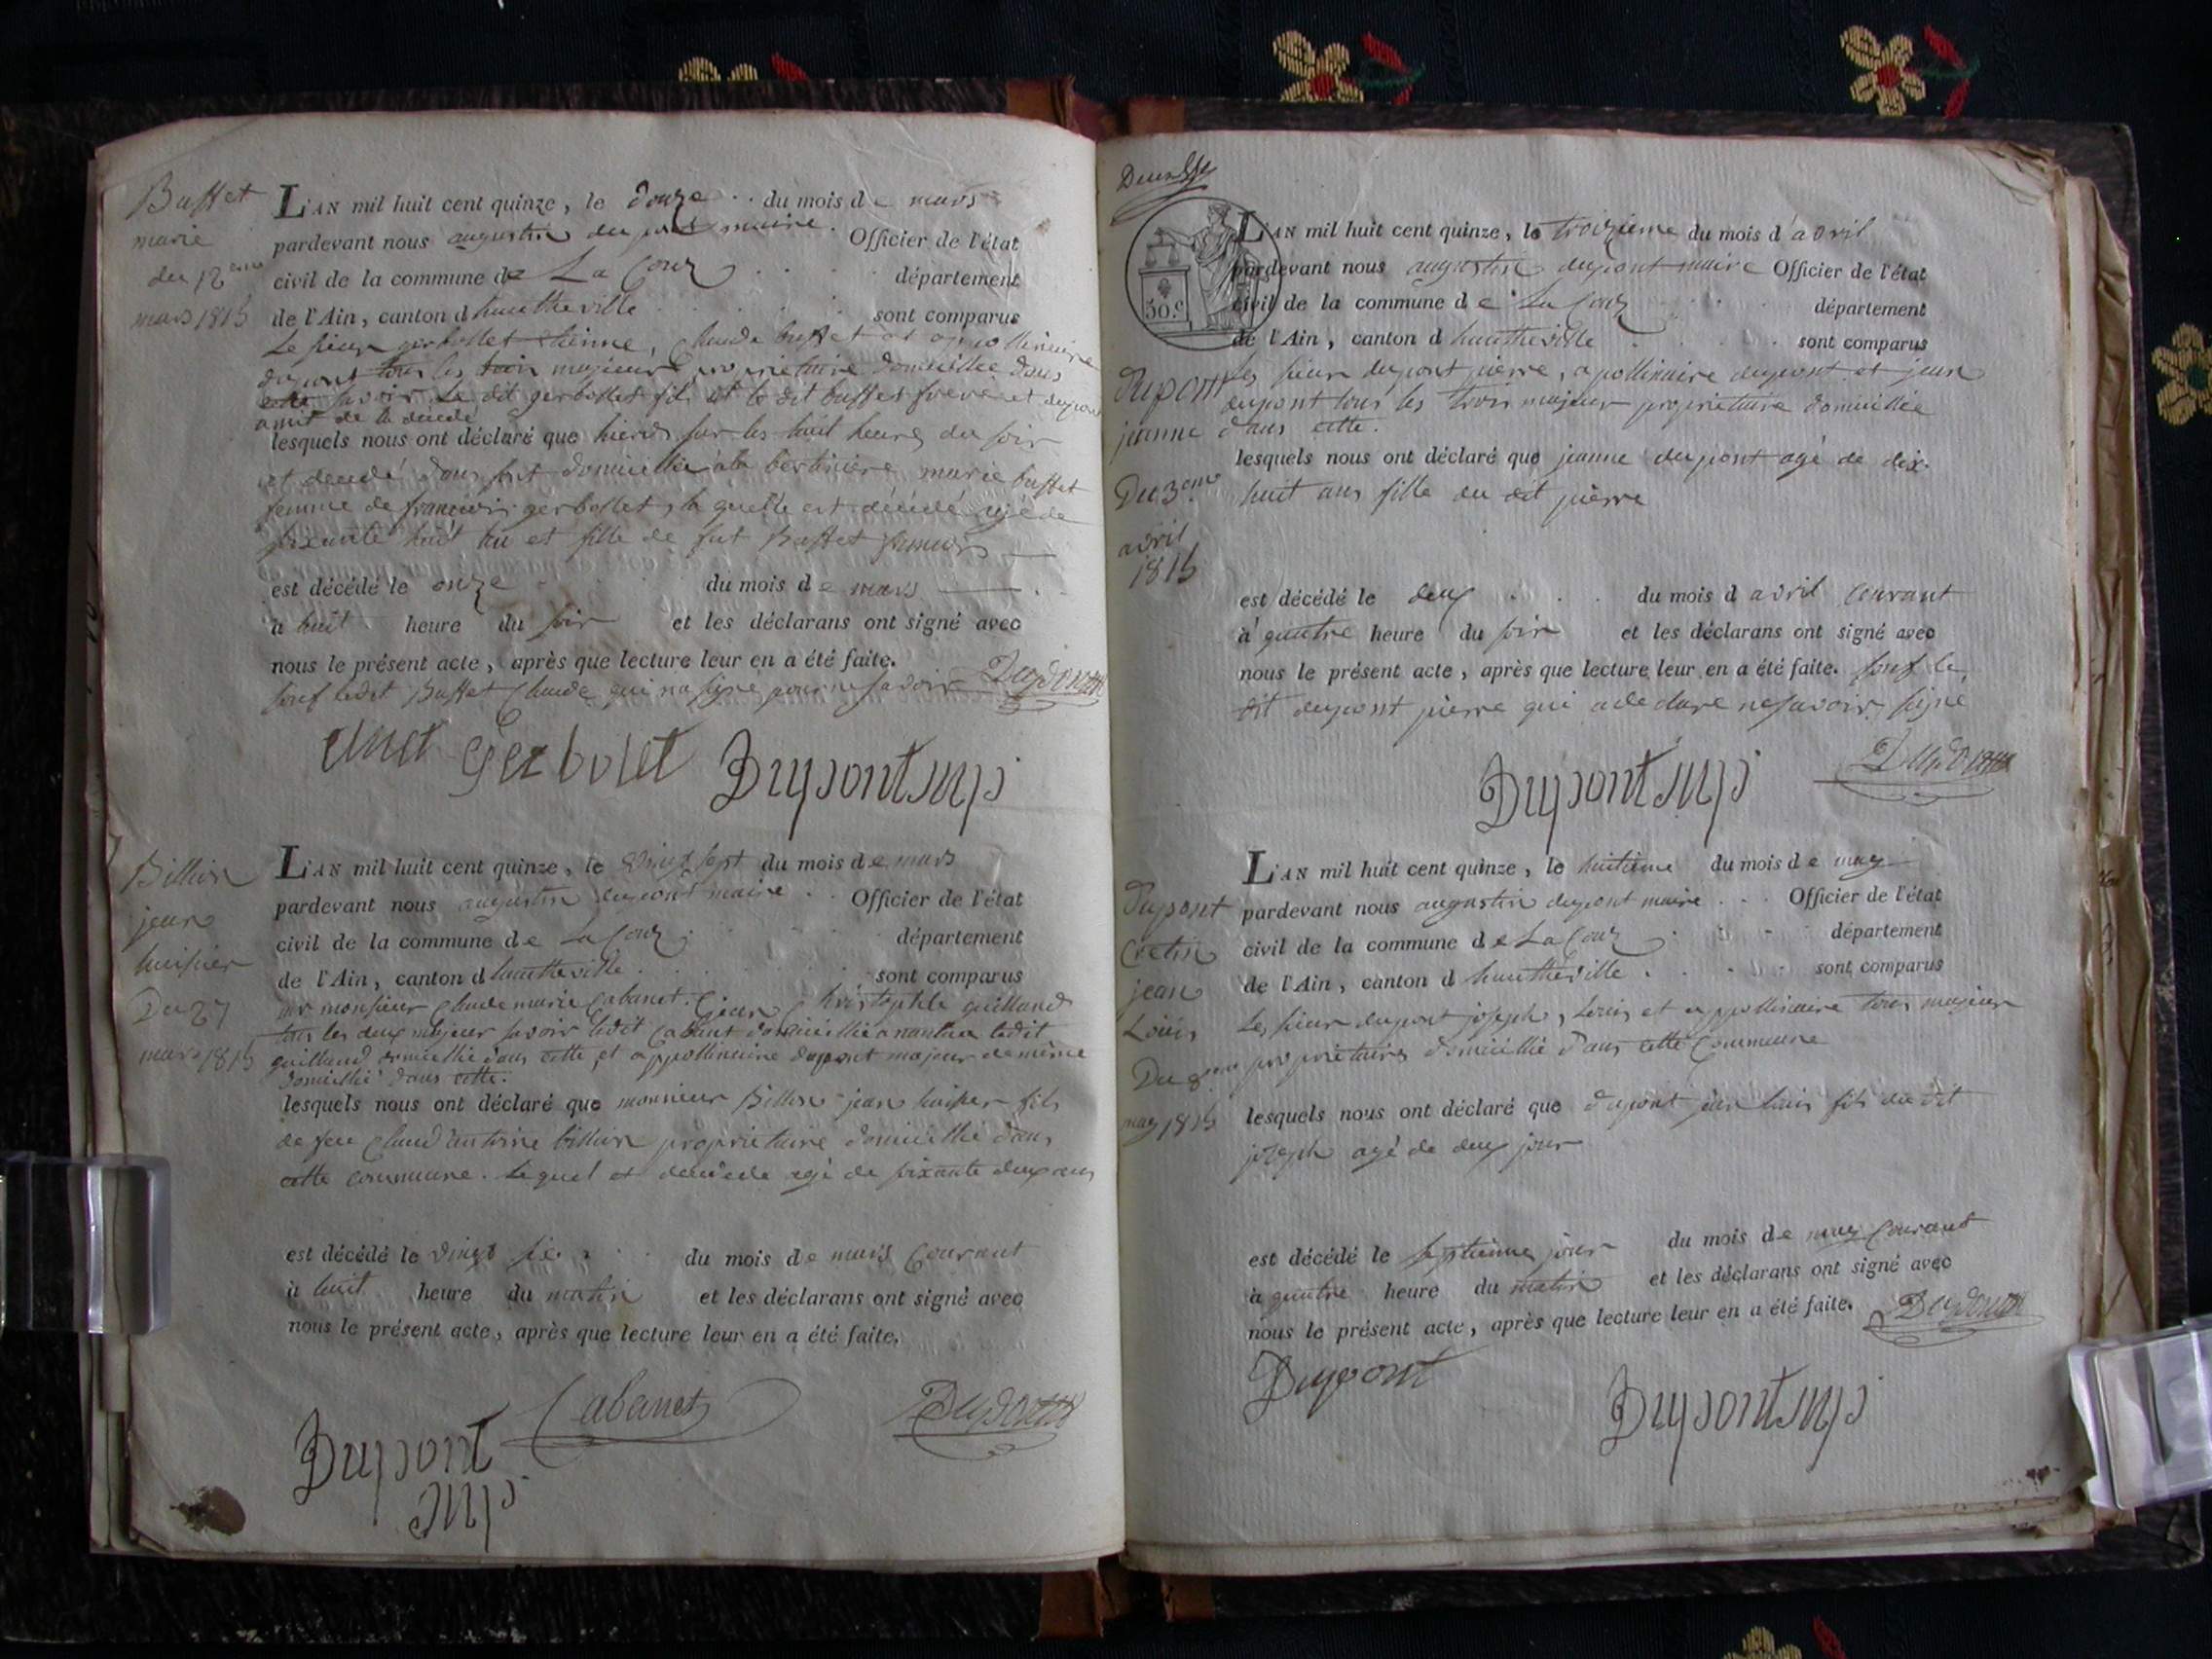 Buffet
marie
du 12eme
mars 1815
L'AN mil huit cent quinze, le douze du mois de mars
pardevant nous augustin dupont maire Officier de l'état
civil de la commune de La Couz département
de l'Ain, canton d hautheville sont comparus
Le sieur gerbollet etienne, Claude buffet et appollinaire
dupont tous les trois majeur propriétaire domicillie dans
cette savoir le dit gerbollet fils et le dit buffet frere et dupont
amit de la décédé
lesquels nous ont déclaré que hiers sur les huit heures du soir
et decedé dans sont domicillie a la bertiniere marie buffet
femme de francois gerbollet, la quelle est décédé agé de
soixante huit an et fille de fut Buffet
est décédé le onze du mois de mars
à huit heure du soir et les déclarans ont signé avec
nous le présent acte, après que lecture leur en a été faite.
souf ledit Buffet Claude qui na signe pour ne savoir Dupont
etnet Gerbolet Dupont
Billion
jean
huissier
Du 27
mars 1815
L'AN mil huit cent quinze, le vingt sept du mois de mars
pardevant nous augustin dupont maire Officier de l'état
civil de la commune de La Couz département
de l'Ain, canton d hautheville sont comparus
monsieur Claude marie Cabanet Christophle guilland
tous les deux majeur savoir ledit Cabanet domicillié a nantua ledit
guilland domicillié dans cette, et appollinaire dupont majeur de même
domicillié dans cette.
lesquels nous ont déclaré que monsieur Billion jean huissier fils
de feu Claud antoine billion propriétaire domicillié dans
cette commune. Lequel et décédé agé de soixante deux ans
est décédé le vingt sis du mois de mars Courant
à huit heure du matin et les déclarans ont signé avec
nous le présent acte, après que lecture leur en a été faite.
Cabanet Dupont
Dupont
30.c
L'AN mil huit cent quinze, le troizieme du mois d avril
pardevant nous augustin dupont maire Officier de l'état
civil de la commune de La Couz département
de l'Ain, canton d hautheville sont comparus
Dupont
jeanne
Du 3eme
avril
1815
les sieur dupont pierre, apollinaire dupont et jean
dupont tous les trois majeur propriétaire domicillie
dans cette.
lesquels nous ont déclaré que jeanne dupont agé de dix
huit ans fille du dit pierre
est décédé le deux du mois d avril Courant
à quatre heure du soir et les déclarans ont signé avec
nous le présent acte, après que lecture leur en a été faite. souf le
dit dupont pierre qui a declare ne savoir signe
Dupont Dupont
Dupont
Cretin
jean
Louis
Du 8eme
may 1815
L'AN mil huit cent quinze, le huitieme du mois de may
pardevant nous augustin dupont maire Officier de l'état
civil de la commune de La Couz département
de l'Ain, canton d hautheville sont comparus
Les sieur dupont joseph, Louis et appollinaire tous majeur
propriétaires domicillié dans cette Commune
lesquels nous ont déclaré que dupont jean louis fils dudit
joseph agé de deux jour
est décédé le septieme jour du mois de may Courant
à quatre heure du matin et les déclarans ont signé avec
nous le présent acte, après que lecture leur en a été faite. Dupont
Dupont
Dupont